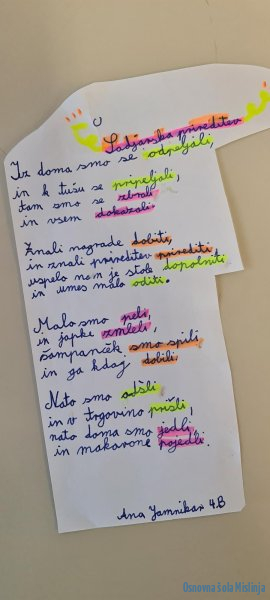 Sadjarska prireditev
Iz doma smo se odpeljali,
in k tušu se pripeljali,
tam smo se zbrali
in vsem dokazali.
Znali nagrade dobiti,
in znali prireditev prirediti
uspelo nam je stole dopolniti
in umes malo oditi.
Malo smo peli,
in japke zmleli,
šampanček smo spili
in ga kdaj dobili.
Nato smo odšli
in v trgovino prišli,
nato doma smo jedli,
in makarone pojedli.
Ana Jamnikar 4.B
Osnovna šola Mislinja